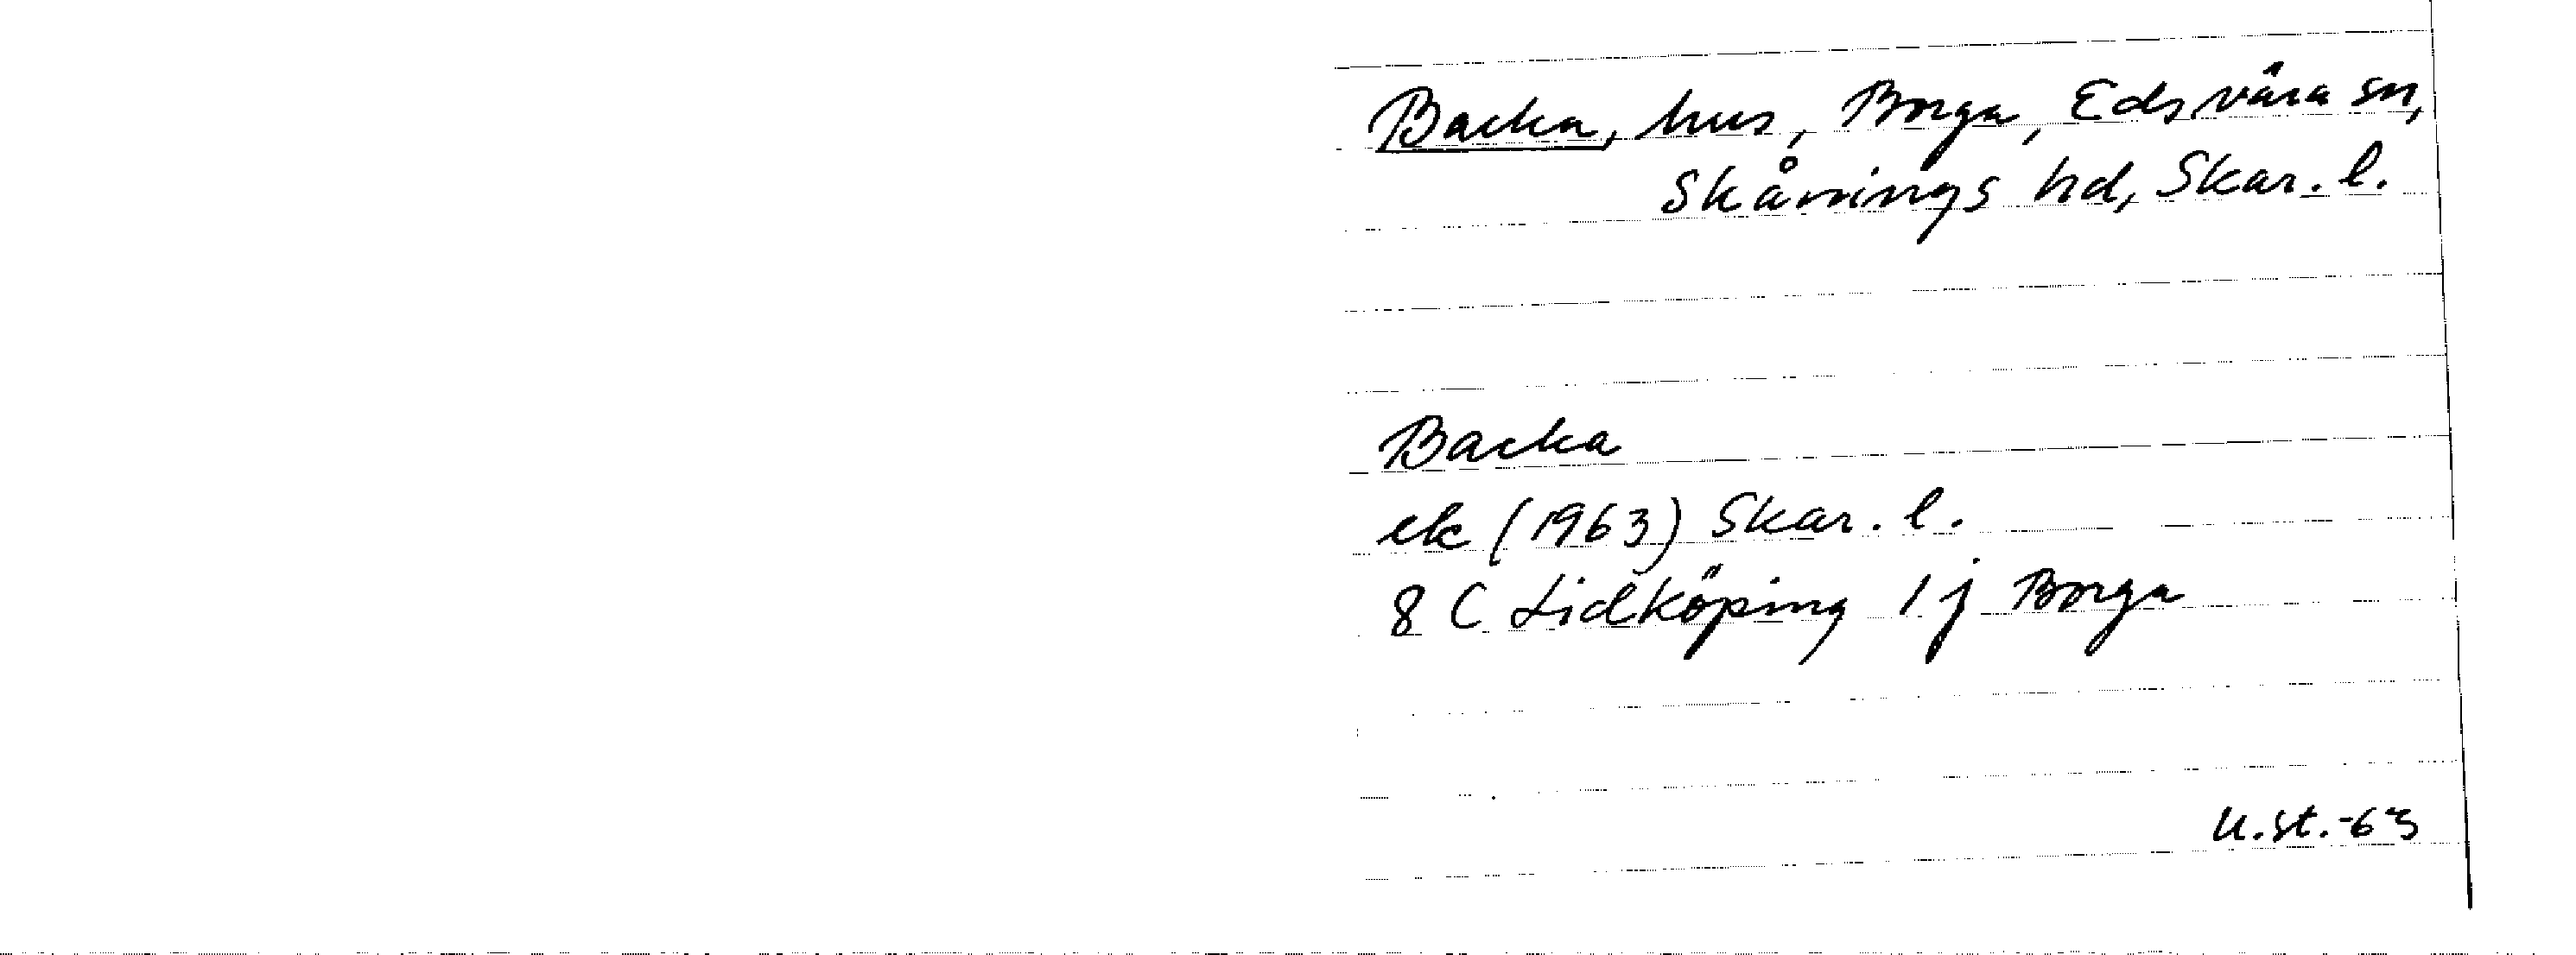 Backa, hus, Borga, Edsvära sn,
Skånings hd, Skar. l.
Backa
ek (1963) Skar. l.
8 C Lidköping 1 j Borga
U.st.-63